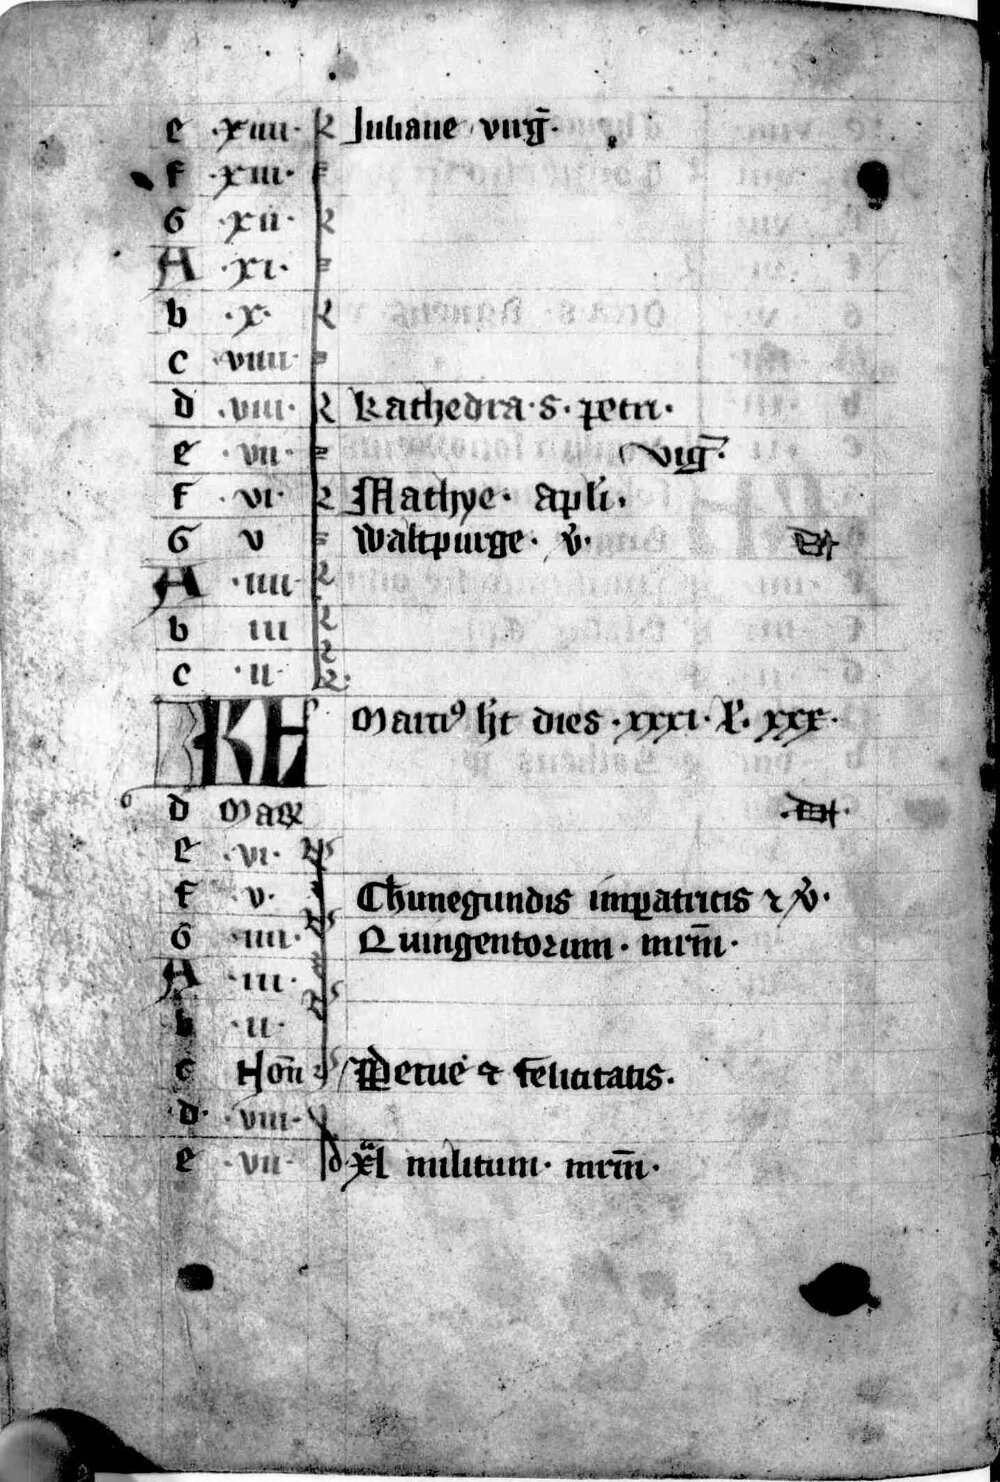 e ·xiiii· k Juliane virḡ·
f ·xiii· k
G ·xii· k
A ·xi· k
b ·x· k
c ·viiii· k
d ·viii· k Kathedra·s·petri·
e ·vii· k vig̅·
f ·vi· k Mathye· apl̓i·
G v k Waltpurge· v̓·
A ·iiii· k
b iii k
c ·ii· k
KL Marti⁹ h̓t dies ·xxxi· l̓· xxx·
d Marc̄
e ·vi· N̄
f ·v· Chunegundis imp̲atricis ⁊ v̓·
G ·iiii· Quingentorum· mr̄m·
A ·iii·
b ·ii·
c Non̄ Petue̓ ⁊ felicitatis·
d· ·viii·
e ·vii· d xl militum· mr̄m·